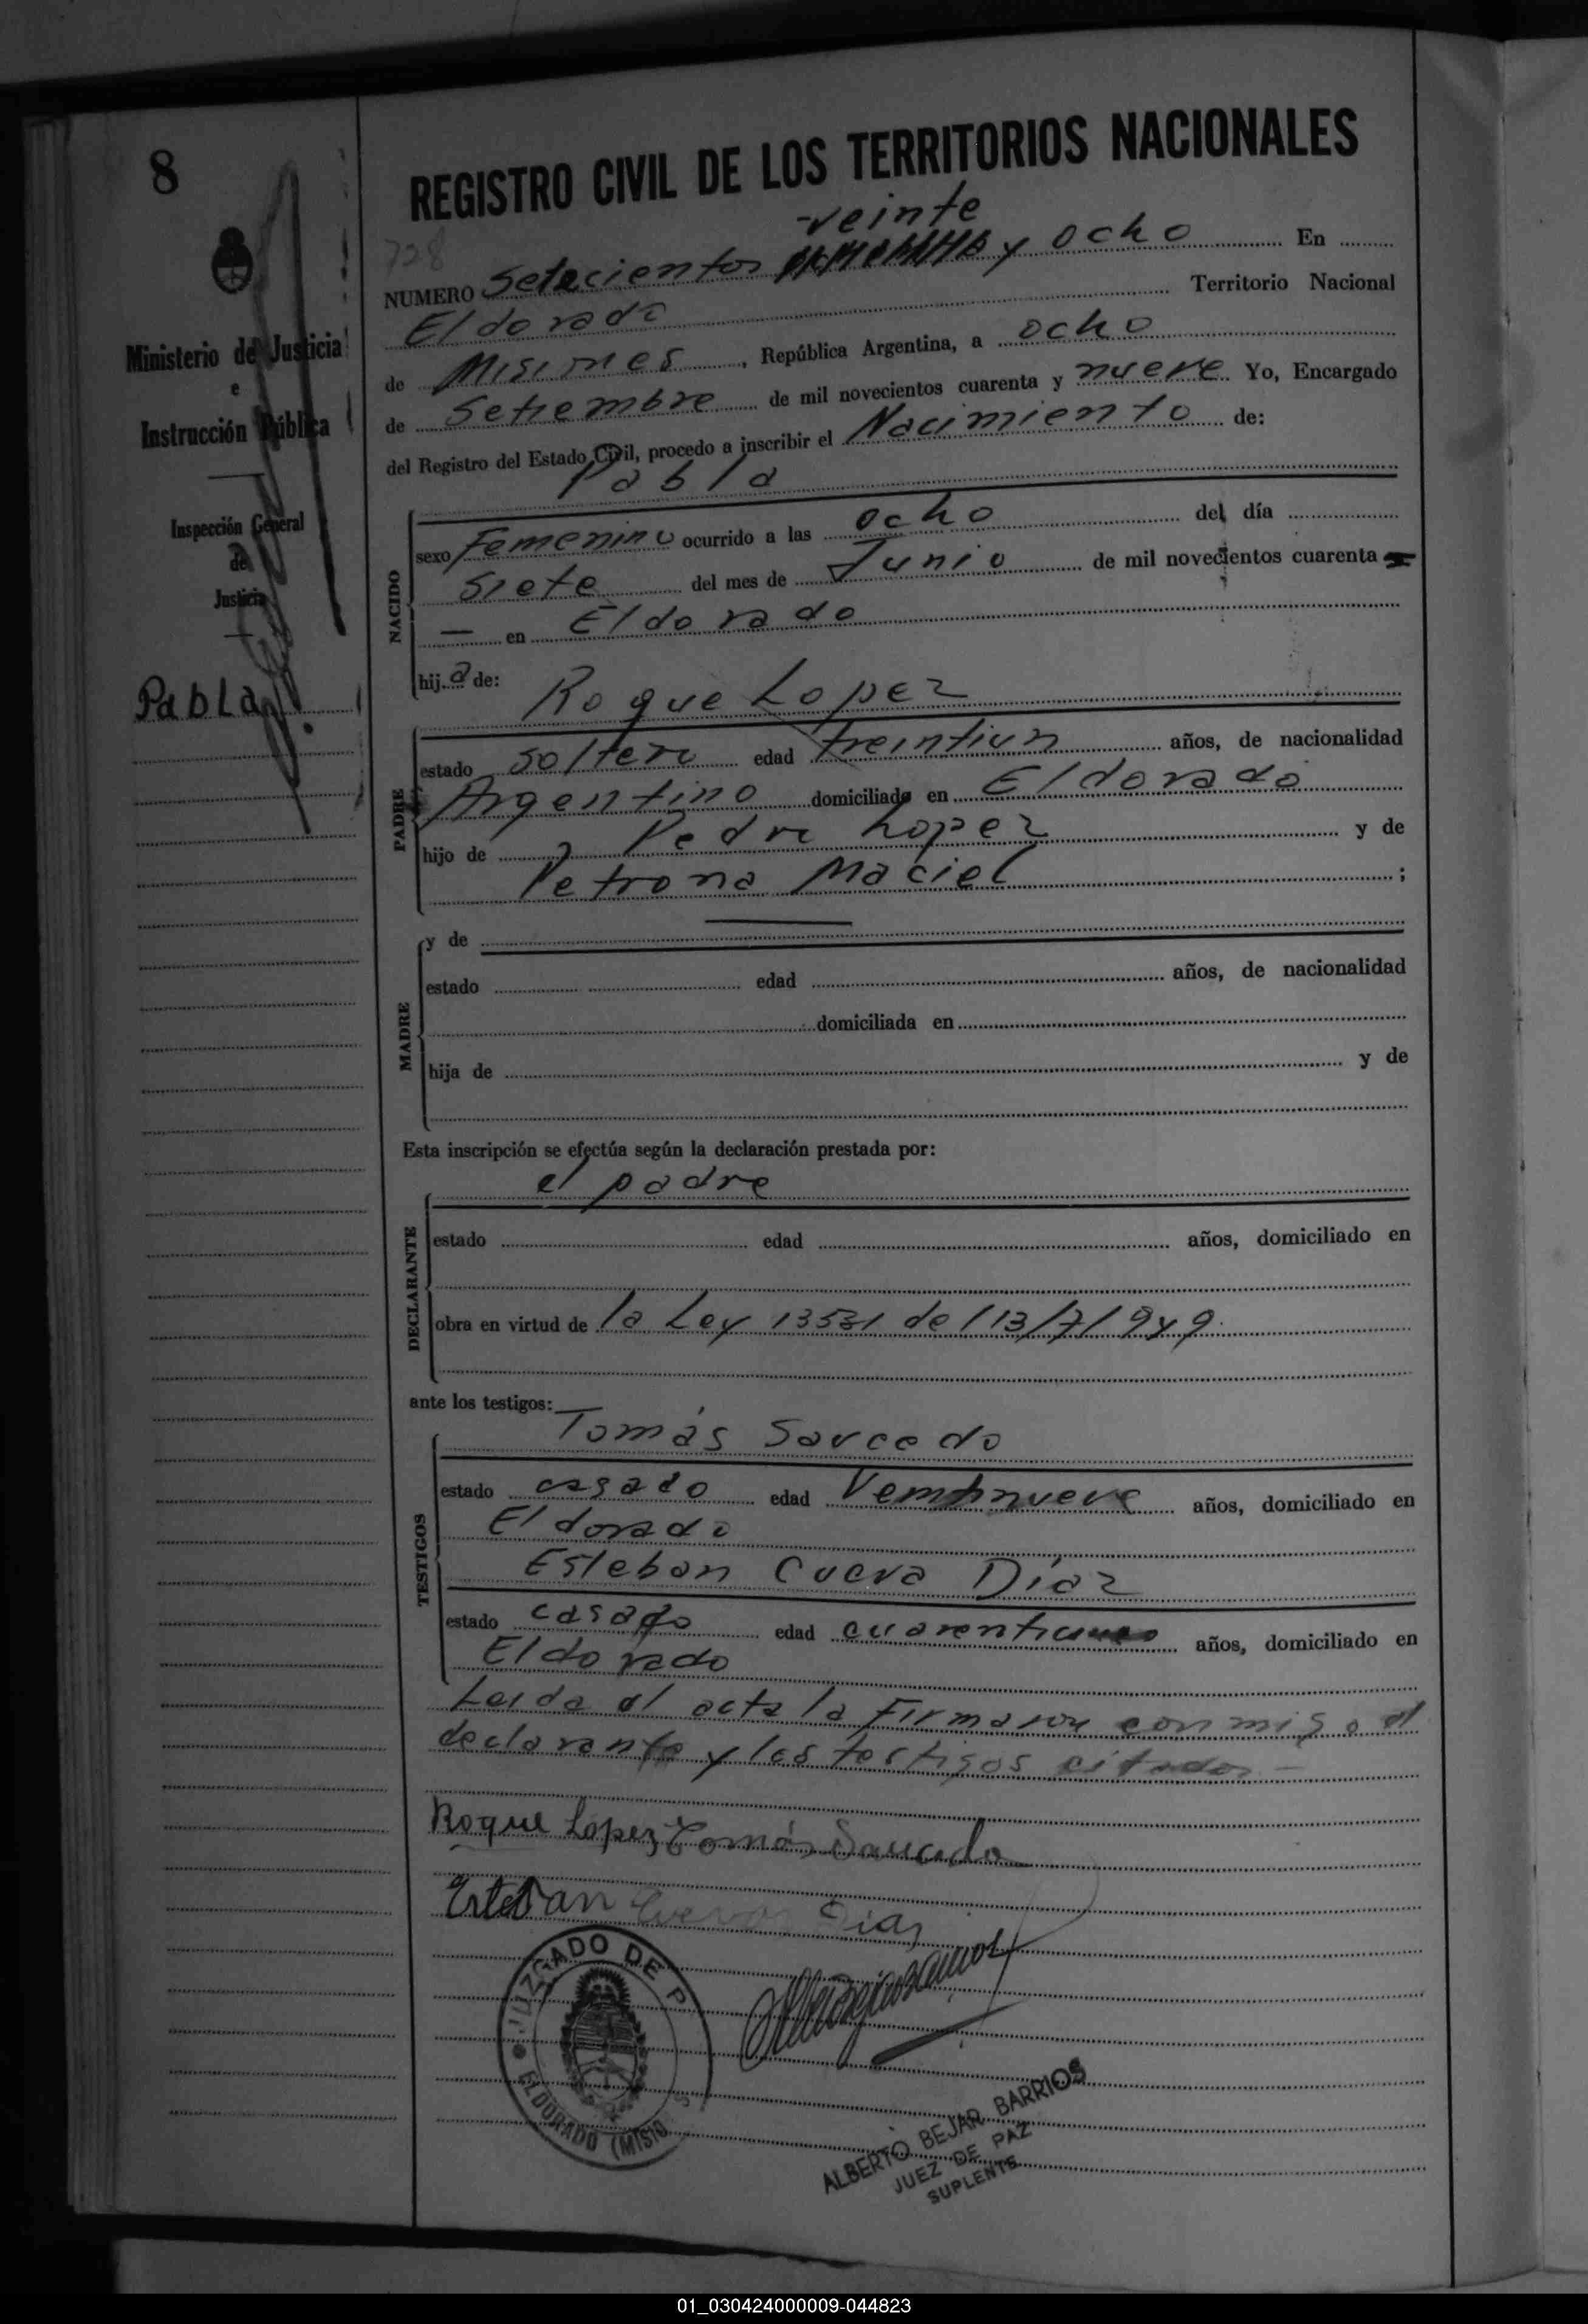 8
Ministerio de Justicia
e
Instrucción Pública
Inspección General
de
Justicia
Pabla
REGISTRO CIVIL DE LOS TERRITORIOS NACIONALES
728
veinte
NUMERO Setecientos y ocho En
Eldorado Territorio Nacional
de Misiones, República Argentina, a ocho
de Setiembre de mil novecientos cuarenta y nueve Yo, Encargado
del Registro del Estado Civil, procedo a inscribir el Nacimiento de:
Pabla
NACIDO
sexo Femenino ocurrido a las ocho del día
Siete del mes de Junio de mil novecientos cuarenta
— en Eldorado
hija de:
Roque Lopez
PADRE
estado soltero edad treintiun años, de nacionalidad
Argentino domiciliado en Eldorado
hijo de Pedro Lopez y de
Petrona Maciel ;
MADRE
y de
estado edad años, de nacionalidad
domiciliada en
hija de y de
Esta inscripción se efectúa según la declaración prestada por:
el padre
DECLARANTE
estado edad años, domiciliado en
obra en virtud de la Ley 13531 del 13/7/949.
ante los testigos:
Tomás Saucedo
TESTIGOS
estado casado edad años, domiciliado en
Eldorado
Esteban Cueva Díaz
estado casado edad años, domiciliado en
Eldorado
Leida el acta la Firmaron conmigo el
declarante y los testigos citados —
Roque Lopez Tomás Saucedo
Esteban Cueva Díaz
JUZGADO DE P
ELDORADO (MISIO
ALBERTO BEJAR BARRIOS
JUEZ DE PAZ
SUPLENTE
01_030424000009-044823